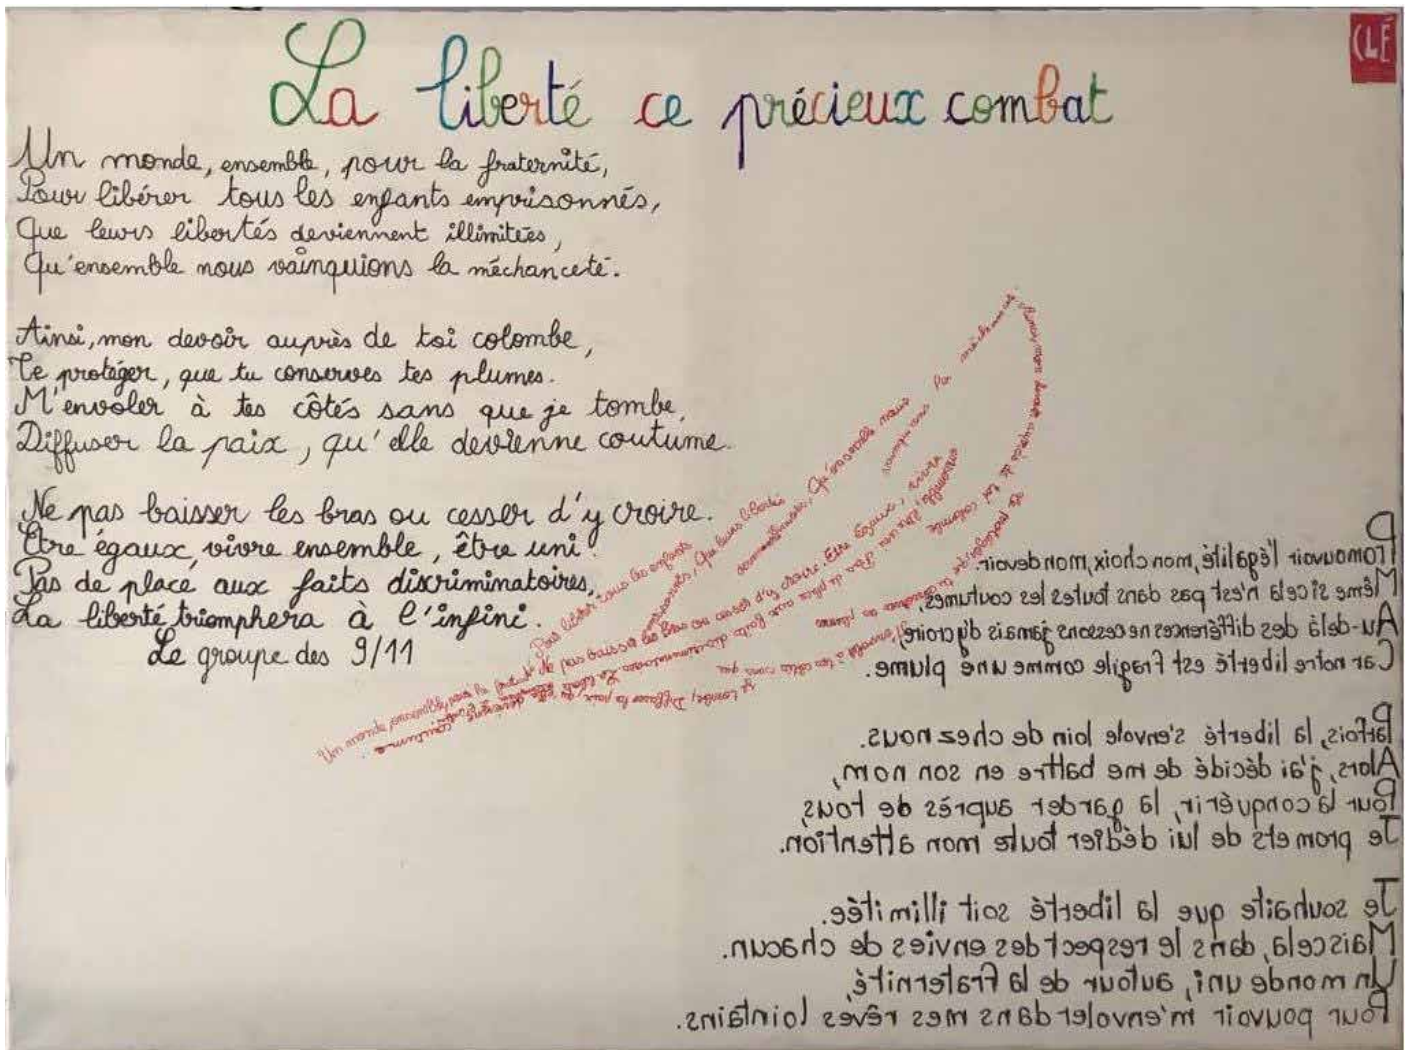 CLÉ
La liberté ce précieux combat
Un monde, ensemble, pour la fraternité,
Pour libérer tous les enfants emprisonnés,
Que leurs libertés deviennent illimitées,
Qu'ensemble nous vainquions la méchanceté.
Ainsi, mon devoir auprès de toi colombe,
Te protéger, que tu conserves tes plumes.
M'envoler à tes côtés sans que je tombe,
Diffuser la paix, qu'elle devienne coutume.
Ne pas baisser les bras ou cesser d'y croire.
Être égaux, vivre ensemble, être uni.
Pas de place aux faits discriminatoires,
La liberté triomphera à l'infini.
Le groupe des 9/11
Pour libérer tous les enfants
Que leurs libertés
Qu'ensemble nous
Ainsi, mon devoir auprès de toi colombe
je tombe, Diffuser la paix, qu'elle devienne coutume
Promouvoir l'égalité, mon choix, mon devoir.
Même si cela n'est pas dans toutes les coutumes,
Au-delà des différences ne cessons jamais d'y croire,
Car notre liberté est fragile comme une plume.
Parfois, la liberté s'envole loin de chez nous.
Alors, j'ai décidé de me battre en son nom,
Pour la conquérir, la garder auprés de tous,
Je promets de lui dédier toute mon attention.
Je souhaite que la liberté soit illimitée.
Mais cela, dans le respect des envies de chacun.
Un monde uni, autour de la fraternité,
Pour pouvoir m'envoler dans mes rêves lointains.